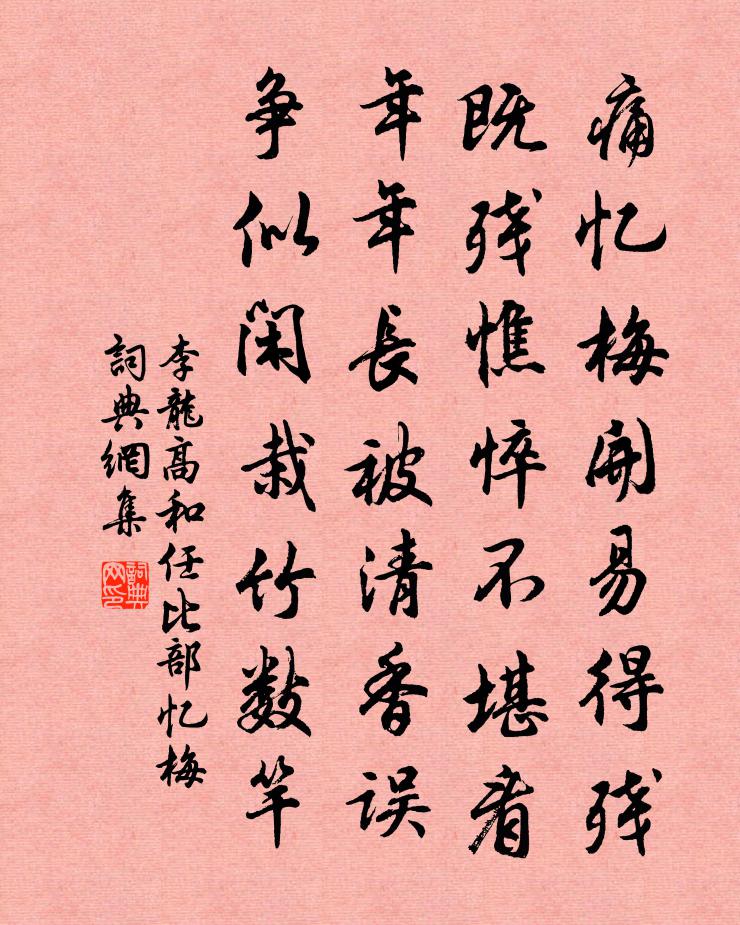 痛忆梅開易得残
既残憔悴不堪看
年年長被清香误
争似闲栽竹数竿
李龍高和任比部忆梅
詞典網集
詞典网印